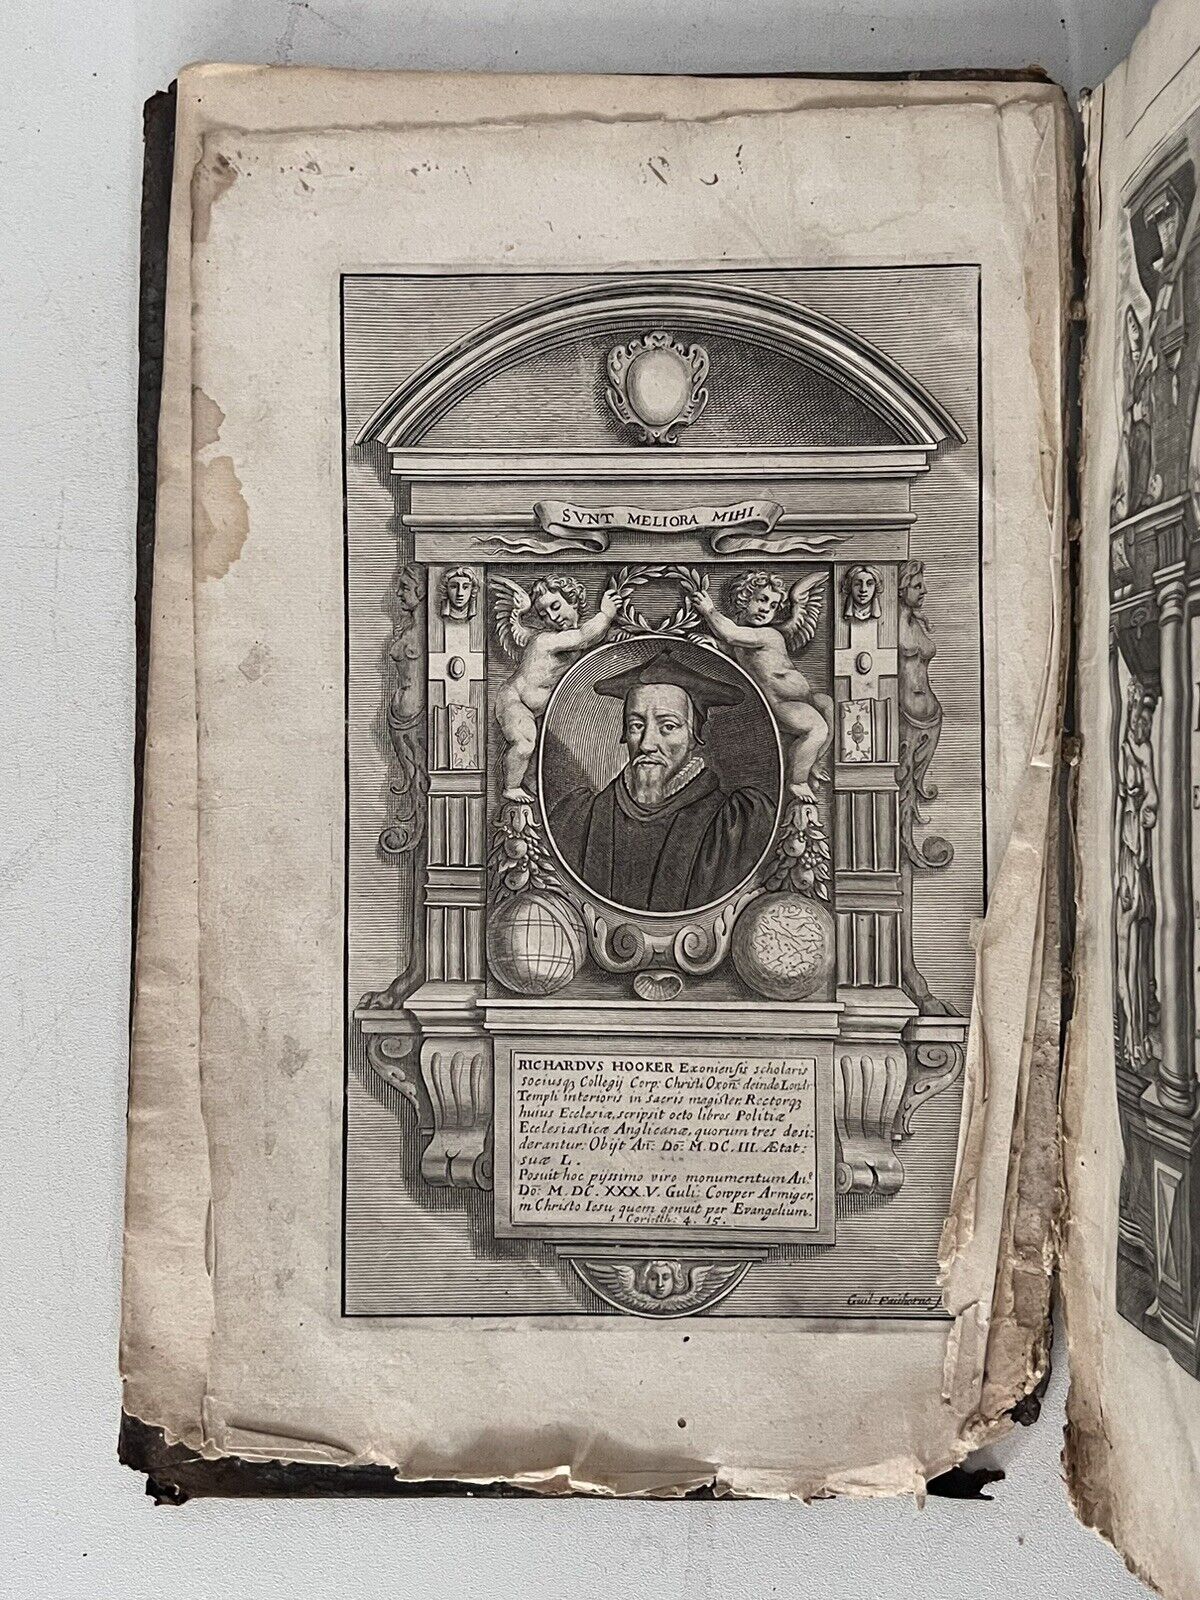 SVNT MELIORA MIHI.
RICHARDVS HOOKER Exoniensis scholaris
sociusq Collegij Corp: Christi Oxoñ deinde Londī
Templi interioris in sacris magister, Rectorq
huius Ecclesiæ, scripsit octo libros Politiæ
Ecclesiasticæ Anglicanæ, quorum tres desi:
derantur. Obijt Añ: Dō: M.DC.III. Ætat:
suæ L.
Posuit hoc pijssimo viro monumentum An.º
Dō: M.DC.XXX.V. Guli: Cowper Armiger,
in Christo Iesu quem genuit per Evangelium.
1 Corinth: 4. 15.
Guil. Faithorne